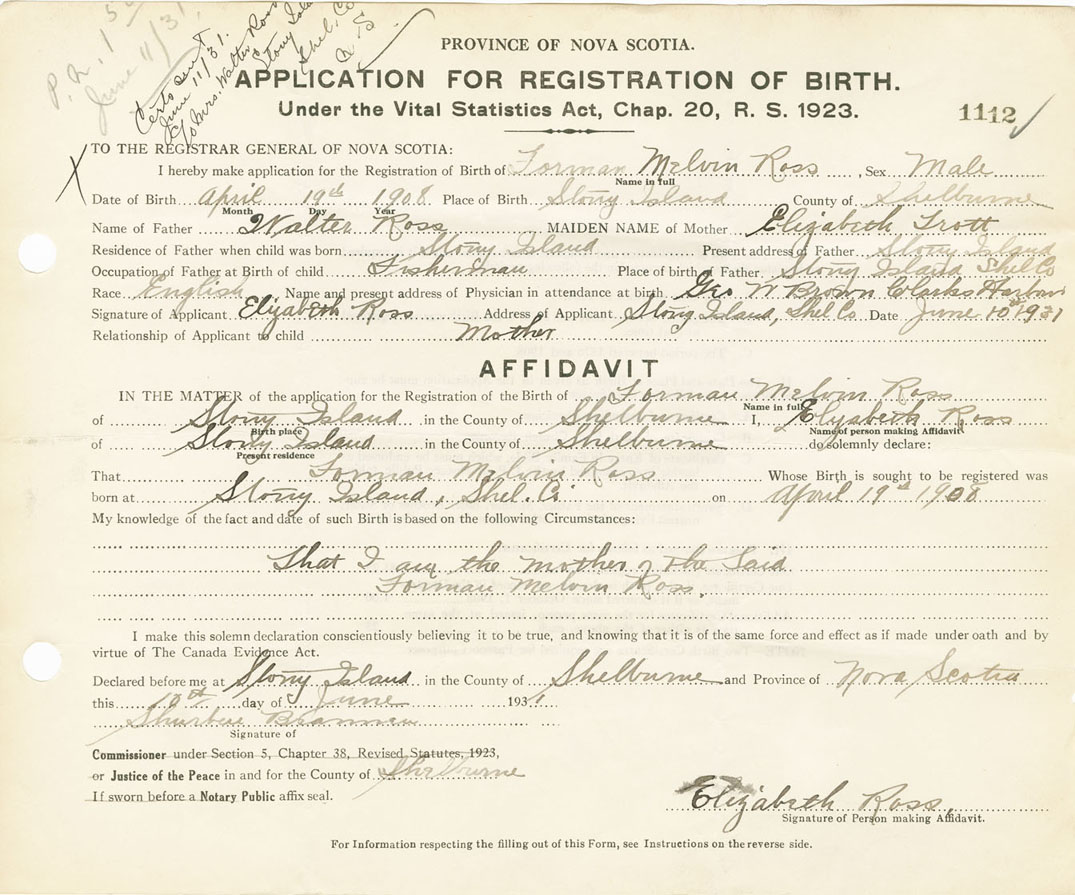 P. N. 1 50
June 11/31
Certs sent
June 11/31.
c/o Mrs. Walter Ross
Stony Island
Shel. Co
N S
PROVINCE OF NOVA SCOTIA.
APPLICATION FOR REGISTRATION OF BIRTH.
Under the Vital Statistics Act, Chap. 20, R. S. 1923.
1112
TO THE REGISTRAR GENERAL OF NOVA SCOTIA:
I hereby make application for the Registration of Birth of Forman Melvin Ross, Sex Male
Name in full
Date of Birth April 19th 1908 Place of Birth Stony Island County of Shelburne
Month Day Year
Name of Father Walter Ross MAIDEN NAME of Mother Elizabeth Trott
Residence of Father when child was born Stony Island Present address of Father Stony Island
Occupation of Father at Birth of child Fisherman Place of birth of Father, Stony Island Shel Co
Race English Name and present address of Physician in attendance at birth Geo W Brown Clarks Harbour
Signature of Applicant Elizabeth Ross Address of Applicant Stony Island, Shel Co Date June 10th 1931
Relationship of Applicant to child Mother
AFFIDAVIT
IN THE MATTER of the application for the Registration of the Birth of Forman Melvin Ross
Name in full
of Stony Island in the County of Shelburne I, Elizabeth Ross
Birth place Name of person making Affidavit
of Stony Island in the County of Shelburne do solemnly declare:
Present residence
That Forman Melvin Ross Whose Birth is sought to be registered was
born at Stony Island, Shel. Co. on April 19th 1908
My knowledge of the fact and date of such Birth is based on the following Circumstances:
That I am the mother of the Said
Forman Melvin Ross.
I make this solemn declaration conscientiously believing it to be true, and knowing that it is of the same force and effect as if made under oath and by
virtue of The Canada Evidence Act.
Declared before me at Stony Island in the County of Shelburne and Province of Nova Scotia
this 10th day of June 1931
Signature of
Commissioner under Section 5, Chapter 38, Revised Statutes, 1923,
or Justice of the Peace in and for the County of Shelburne
If sworn before a Notary Public affix seal.
Elizabeth Ross,
Signature of Person making Affidavit.
For Information respecting the filling out of this Form, see Instructions on the reverse side.